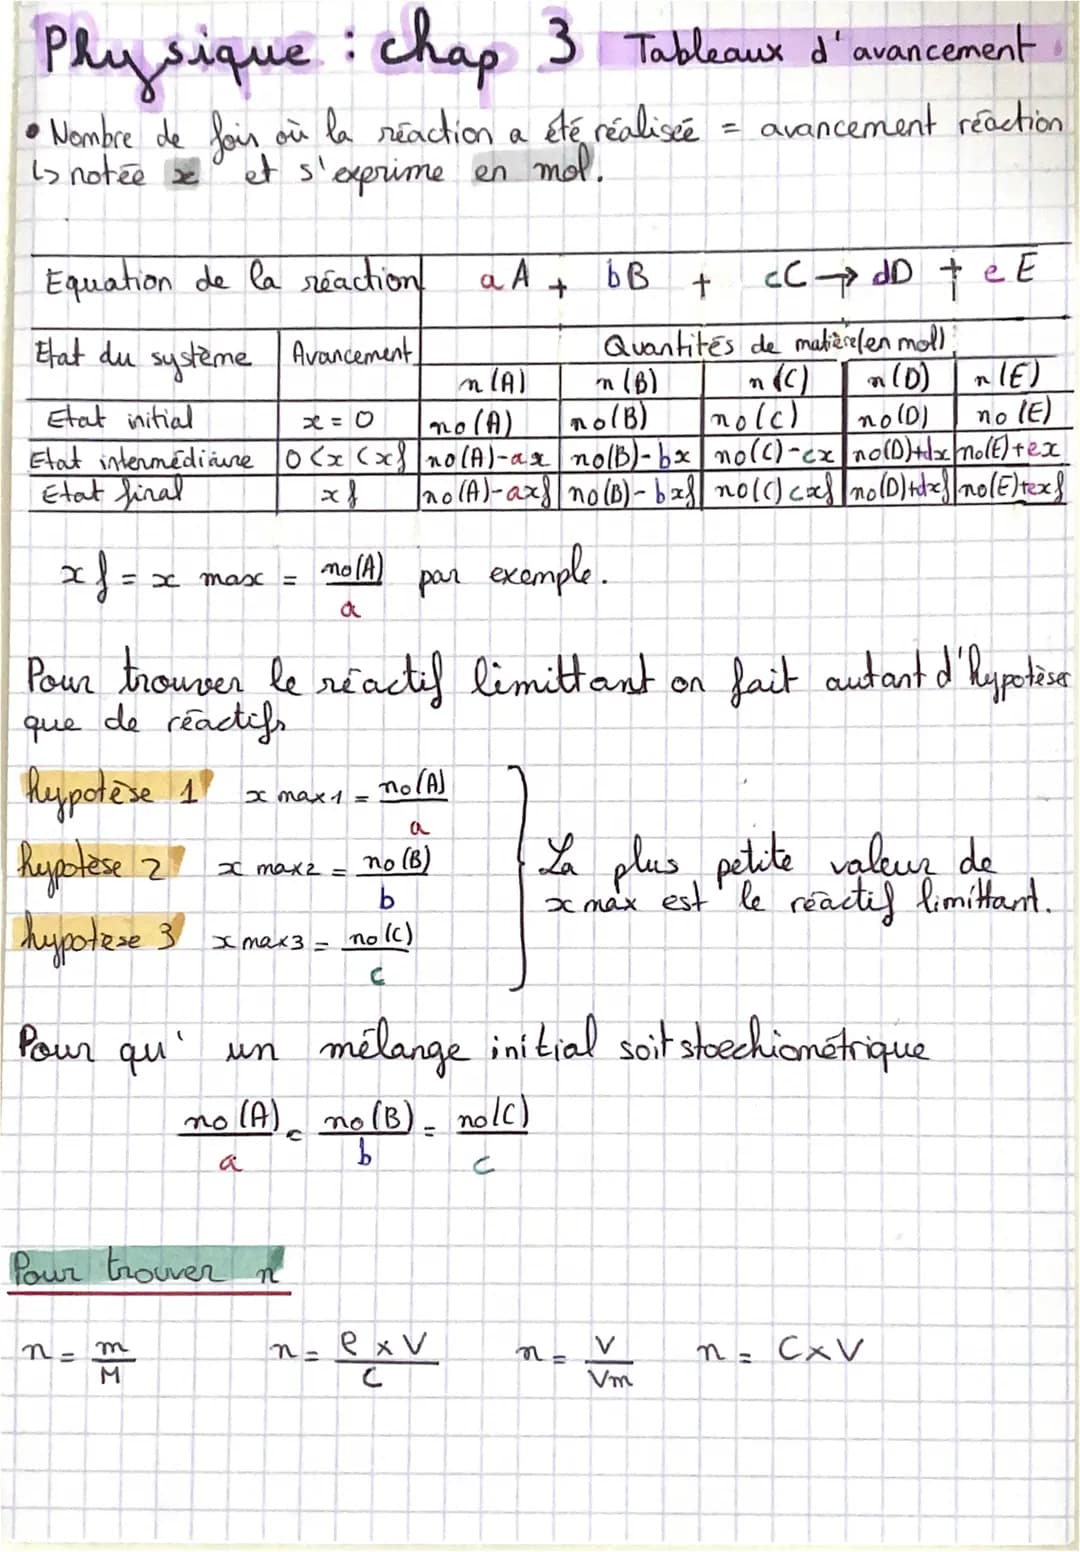 Physique : chap 3 Tableaux d'avancement
• Nombre de fois où la réaction a été réalisée = avancement réaction
↳ notée x et s'exprime en mol.
Equation de la réaction aA + bB + cC → dD + eE
Etat du système Avancement Quantités de matière(en mol)
n(A) n(B) n(C) n(D) n(E)
Etat initial x = 0 no(A) no(B) no(c) no(D) no(E)
Etat intermédiaire 0<x<xf no(A)-ax no(B)-bx no(C)-cx no(D)+dx no(E)+ex
Etat final xf no(A)-axf no(B)-bxf no(C)cxf no(D)+dxf no(E)+exf
xf = x max = no(A)/a par exemple.
Pour trouver le réactif limittant on fait autant d'hypotèses
que de réactifs
hypotèse 1 x max1 = no(A)/a
hypotèse 2 x max2 = no(B)/b
hypotèse 3 x max3 = no(C)/c
La plus petite valeur de
x max est le réactif limittant.
Pour qu'un mélange initial soit stoechiométrique
no(A)/a = no(B)/b = no(C)/c
Pour trouver n
n = m/M n = ρ x V/C n = V/Vm n = C x V